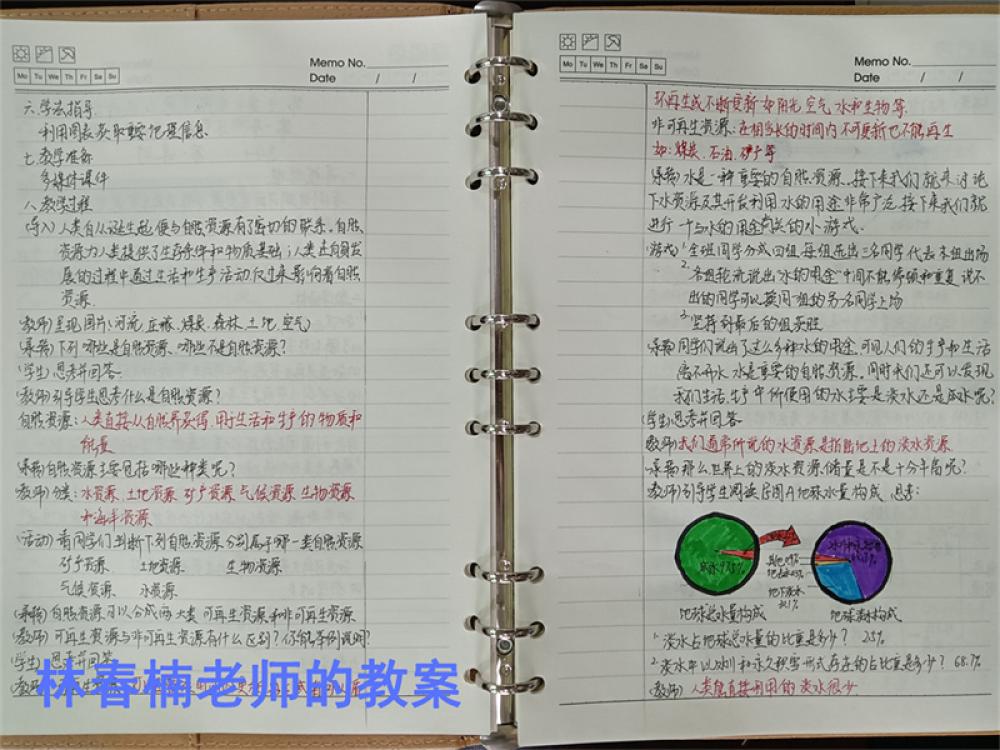 Mo Tu We Th Fr Sa Su
Memo No.
Date / /
六.学法指导
利用图表获取重要地理信息
七.教学准备
多媒体课件
八.教学过程
(导入)人类自从诞生起,便与自然资源有了密切的联系。自然
资源为人类提供了生存条件和物质基础;人类在自身发
展的过程中通过生活和生产活动反过来影响着自然
资源.
(教师)呈现图片:河流、煤炭、森林、土地、空气
(承转)下列哪些是自然资源、哪些不是自然资源?
(学生)思考并回答.
(教师)引导学生思考什么是自然资源?
自然资源:人类直接从自然界获得,用于生活和生产的物质和
能量
(承转)自然资源主要包括哪些种类呢?
(教师)分类:水资源、土地资源、矿产资源、气候资源、生物资源
和海洋资源
(活动)看同学们判断下列自然资源分别属于哪一类自然资源
矿产资源 土地资源 生物资源
气候资源 水资源
(承转)自然资源可以分成两大类 可再生资源和非可再生资源
(教师)可再生资源与非可再生资源有什么区别?你能举例说明?
(学生)思考并回答
林春楠老师的教案
Mo Tu We Th Fr Sa Su
Memo No.
Date / /
环再生或不断更新 如阳光、空气、水和生物等.
非可再生资源:在相当长的时间内不可更新也不能再生
如:煤炭、石油、矿产等
(承转)水是一种重要的自然资源,接下来我们就来讨论
下水资源及其开发利用 水的用途非常广泛 接下来我们就
进行一个与水的用途有关的小游戏.
(游戏)1.全班同学分成四组,每组选出三名同学代表本组出场
2.各组轮流说出"水的用途"中间不能停顿和重复 说不
出的同学可以换同组的另一名同学上场
3.坚持到最后的组获胜
(承转)同学们说出了这么多种水的用途,可见人们的生产和生活
离不开水 水是重要的自然资源。同时我们还可以发现
我们生活、生产中所使用的水主要是淡水还是咸水呢?
(学生)思考并回答
(教师)我们通常所说的水资源是指陆地上的淡水资源
(承转)那么,世界上的淡水资源储量是不是十分丰富呢?
(教师)引导学生阅读导图A地球水量构成 思考:
地下淡水
地球总水量构成 地球淡水构成
1.淡水占地球总水量的比重是多少? 2.5%
2.淡水中以冰川和永久积雪形式存在的占比重是多少? 68.7%
(教师)人类能直接利用的淡水很少.